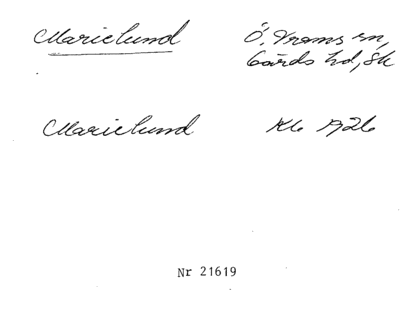 Marielund Ö. Vrams sn,
Gärds hd, Sk
Marielund Kb 1926
Nr 21619